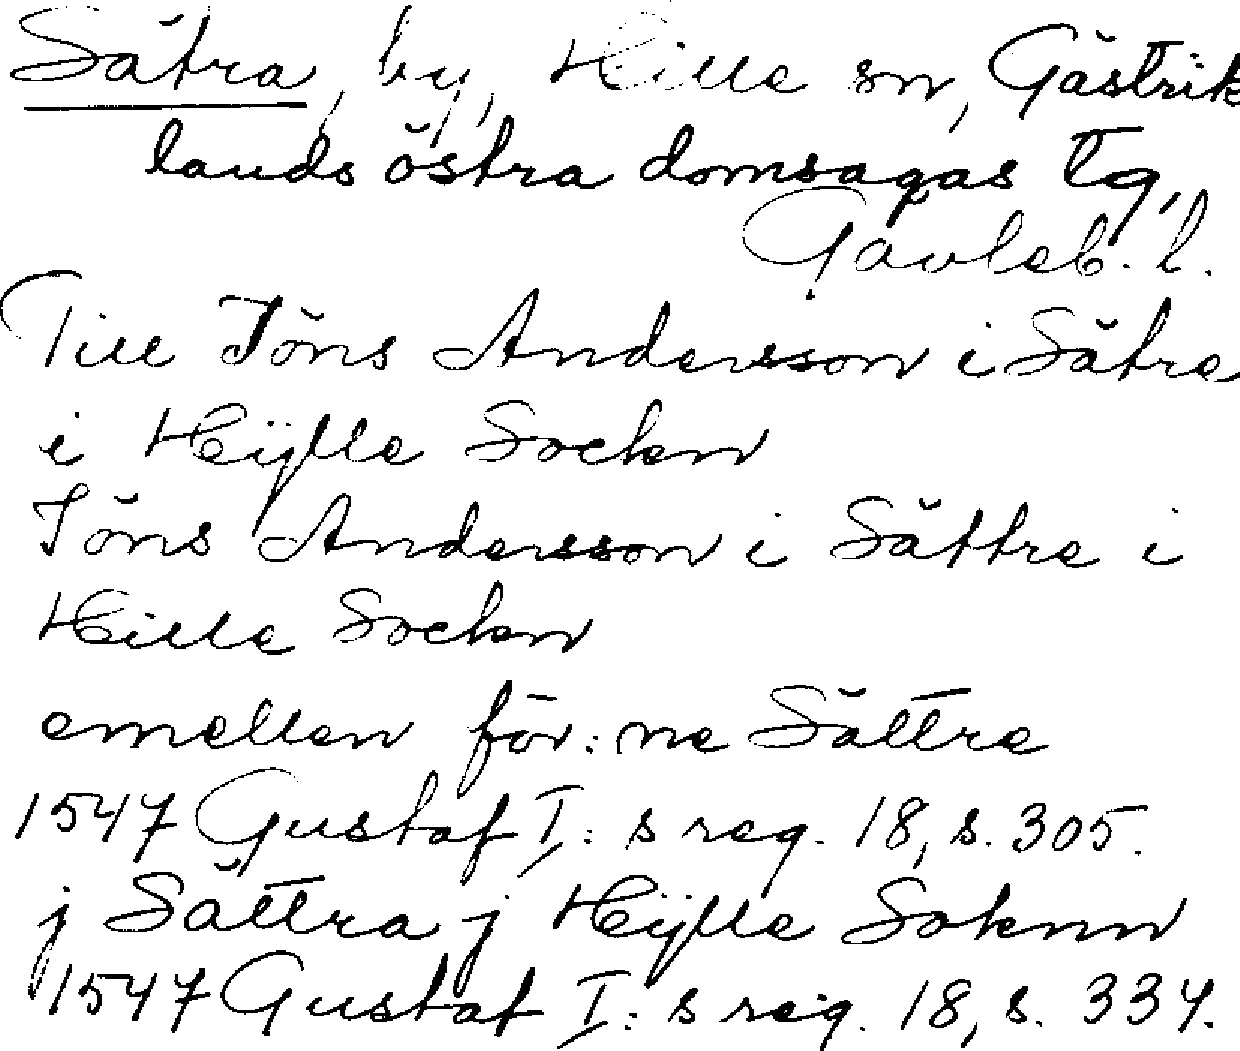 Sätra, by, Hille sn, Gästrik
lands östra domsagas tg,
Gävleb. l.
Till Jöns Andersson i Sätre
i Hÿlle Sockn
Jöns Andersson i Sättre i
Hille Sockn
emellen för:ne Sättre
1547 Gustaf I:s reg. 18, s. 305.
j Sättra j Hÿlle Soknn
1547 Gustaf I:s reg. 18, s. 334.